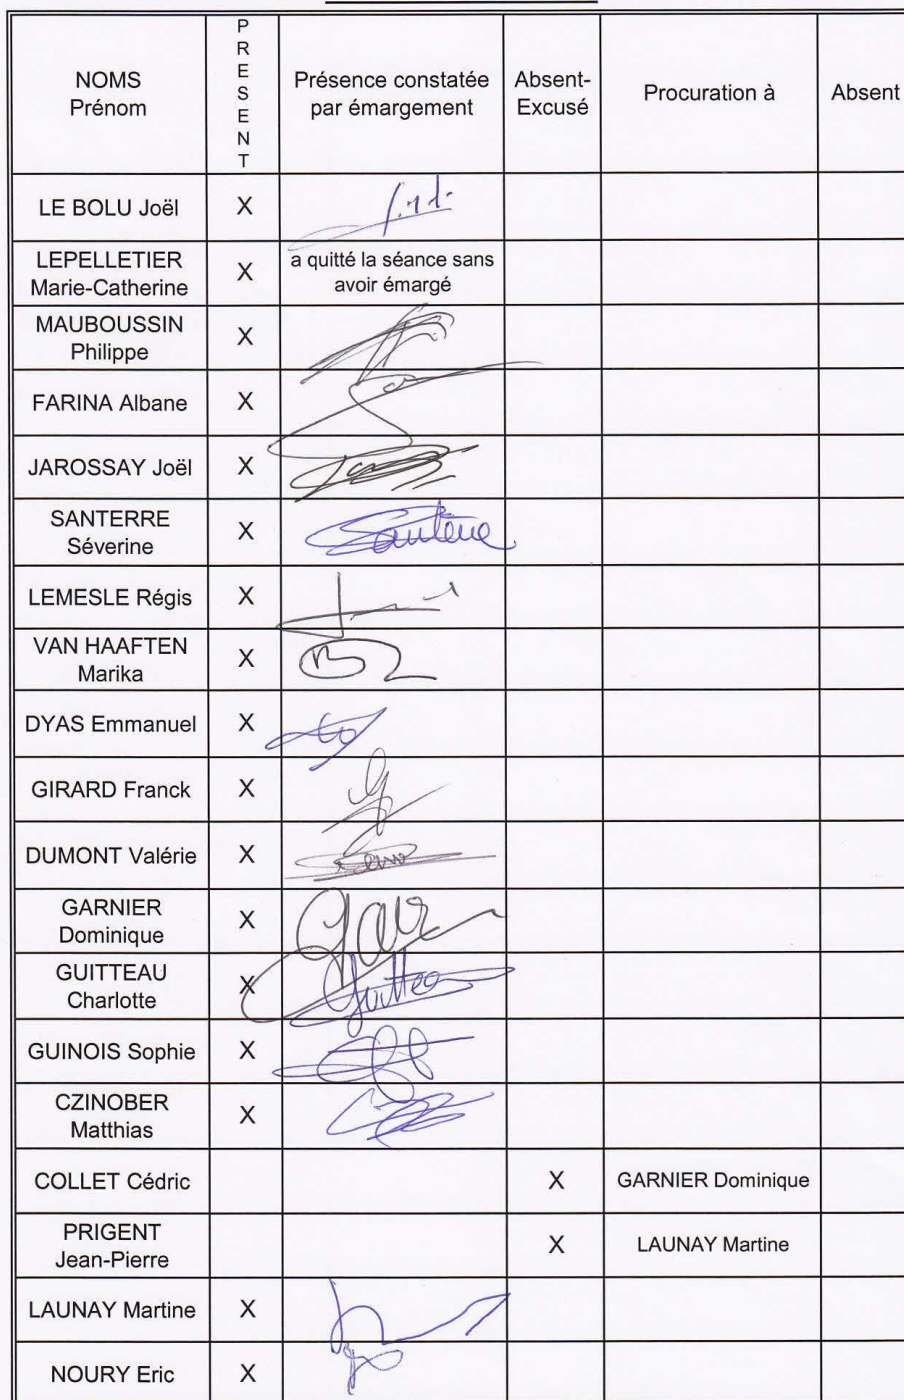 NOMS
Prénom
P
R
E
S
E
N
T
Présence constatée
par émargement
Absent-
Excusé
Procuration à
Absent
LE BOLU Joël X
LEPELLETIER
Marie-Catherine
X
a quitté la séance sans
avoir émargé
MAUBOUSSIN
Philippe
X
FARINA Albane X
JAROSSAY Joël X
SANTERRE
Séverine
X
LEMESLE Régis X
VAN HAAFTEN
Marika
X
DYAS Emmanuel X
GIRARD Franck X
DUMONT Valérie X
GARNIER
Dominique
X
GUITTEAU
Charlotte
X
GUINOIS Sophie X
CZINOBER
Matthias
X
COLLET Cédric X GARNIER Dominique
PRIGENT
Jean-Pierre
X LAUNAY Martine
LAUNAY Martine X
NOURY Eric X